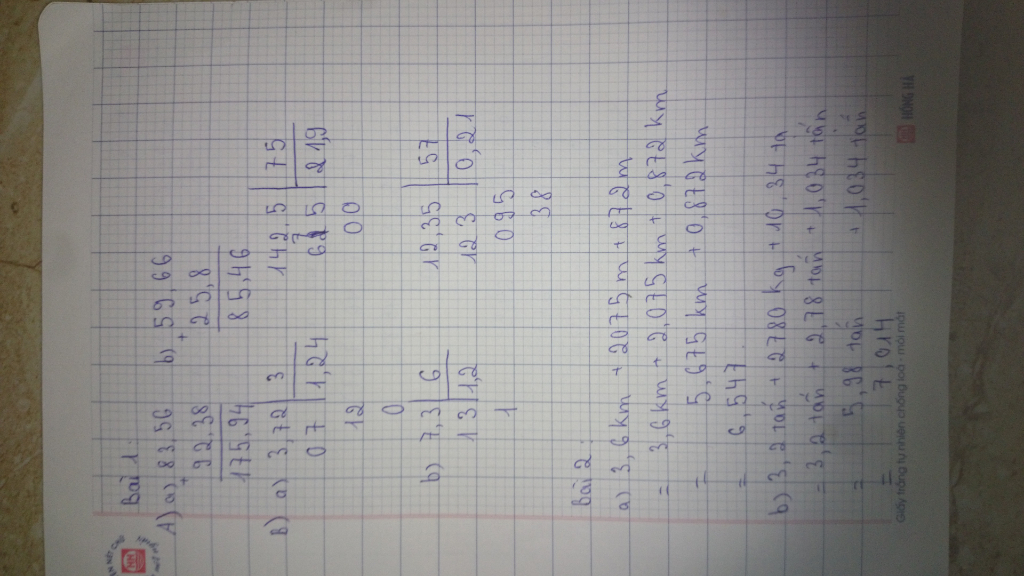 Bài 1:
A) a) 83,56 b) 59,66
+ +
92,38 25,8
175,94 85,46
B) a) 3,72 3 142,5 75
07 1,24 675 21,9
12 00
0
b) 7,3 6 12,35 57
13 1,2 123 0,21
1 095
38
Bài 2:
a) 3,6km + 2075m + 872m
= 3,6km + 2,075km + 0,872km
= 5,675km + 0,872km
= 6,547
b) 3,2 tấn + 2780 kg + 10,34 tạ
= 3,2 tấn + 2,78 tấn + 1,034 tấn
= 5,98 tấn + 1,034 tấn
= 7,014
Giấy trắng tự nhiên chống loá - mỏi mắt
HỒNG HÀ